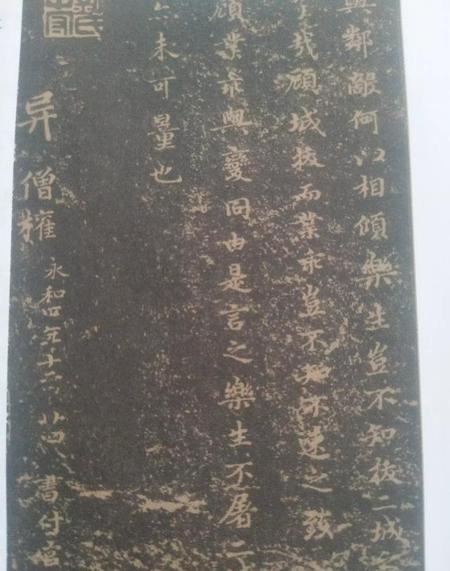 與鄰敵何以相傾樂生豈不知拔二城
哉顧城拔而業乖豈不 不速之致
顧業乖與變同由是言之樂生不屠二
亦未可量也
异 僧權 永和四年十二 廿四 書付官